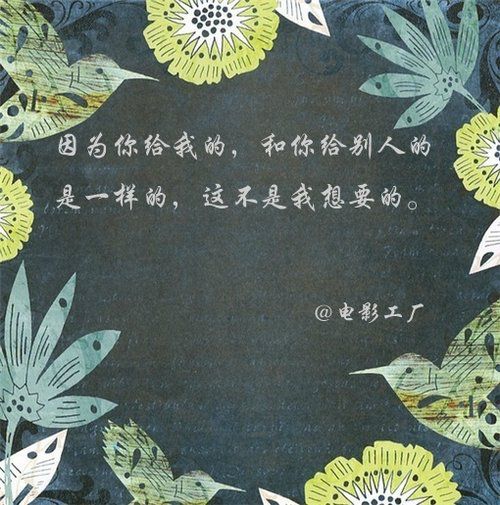 因为你给我的，和你给别人的
是一样的，这不是我想要的。
@电影工厂